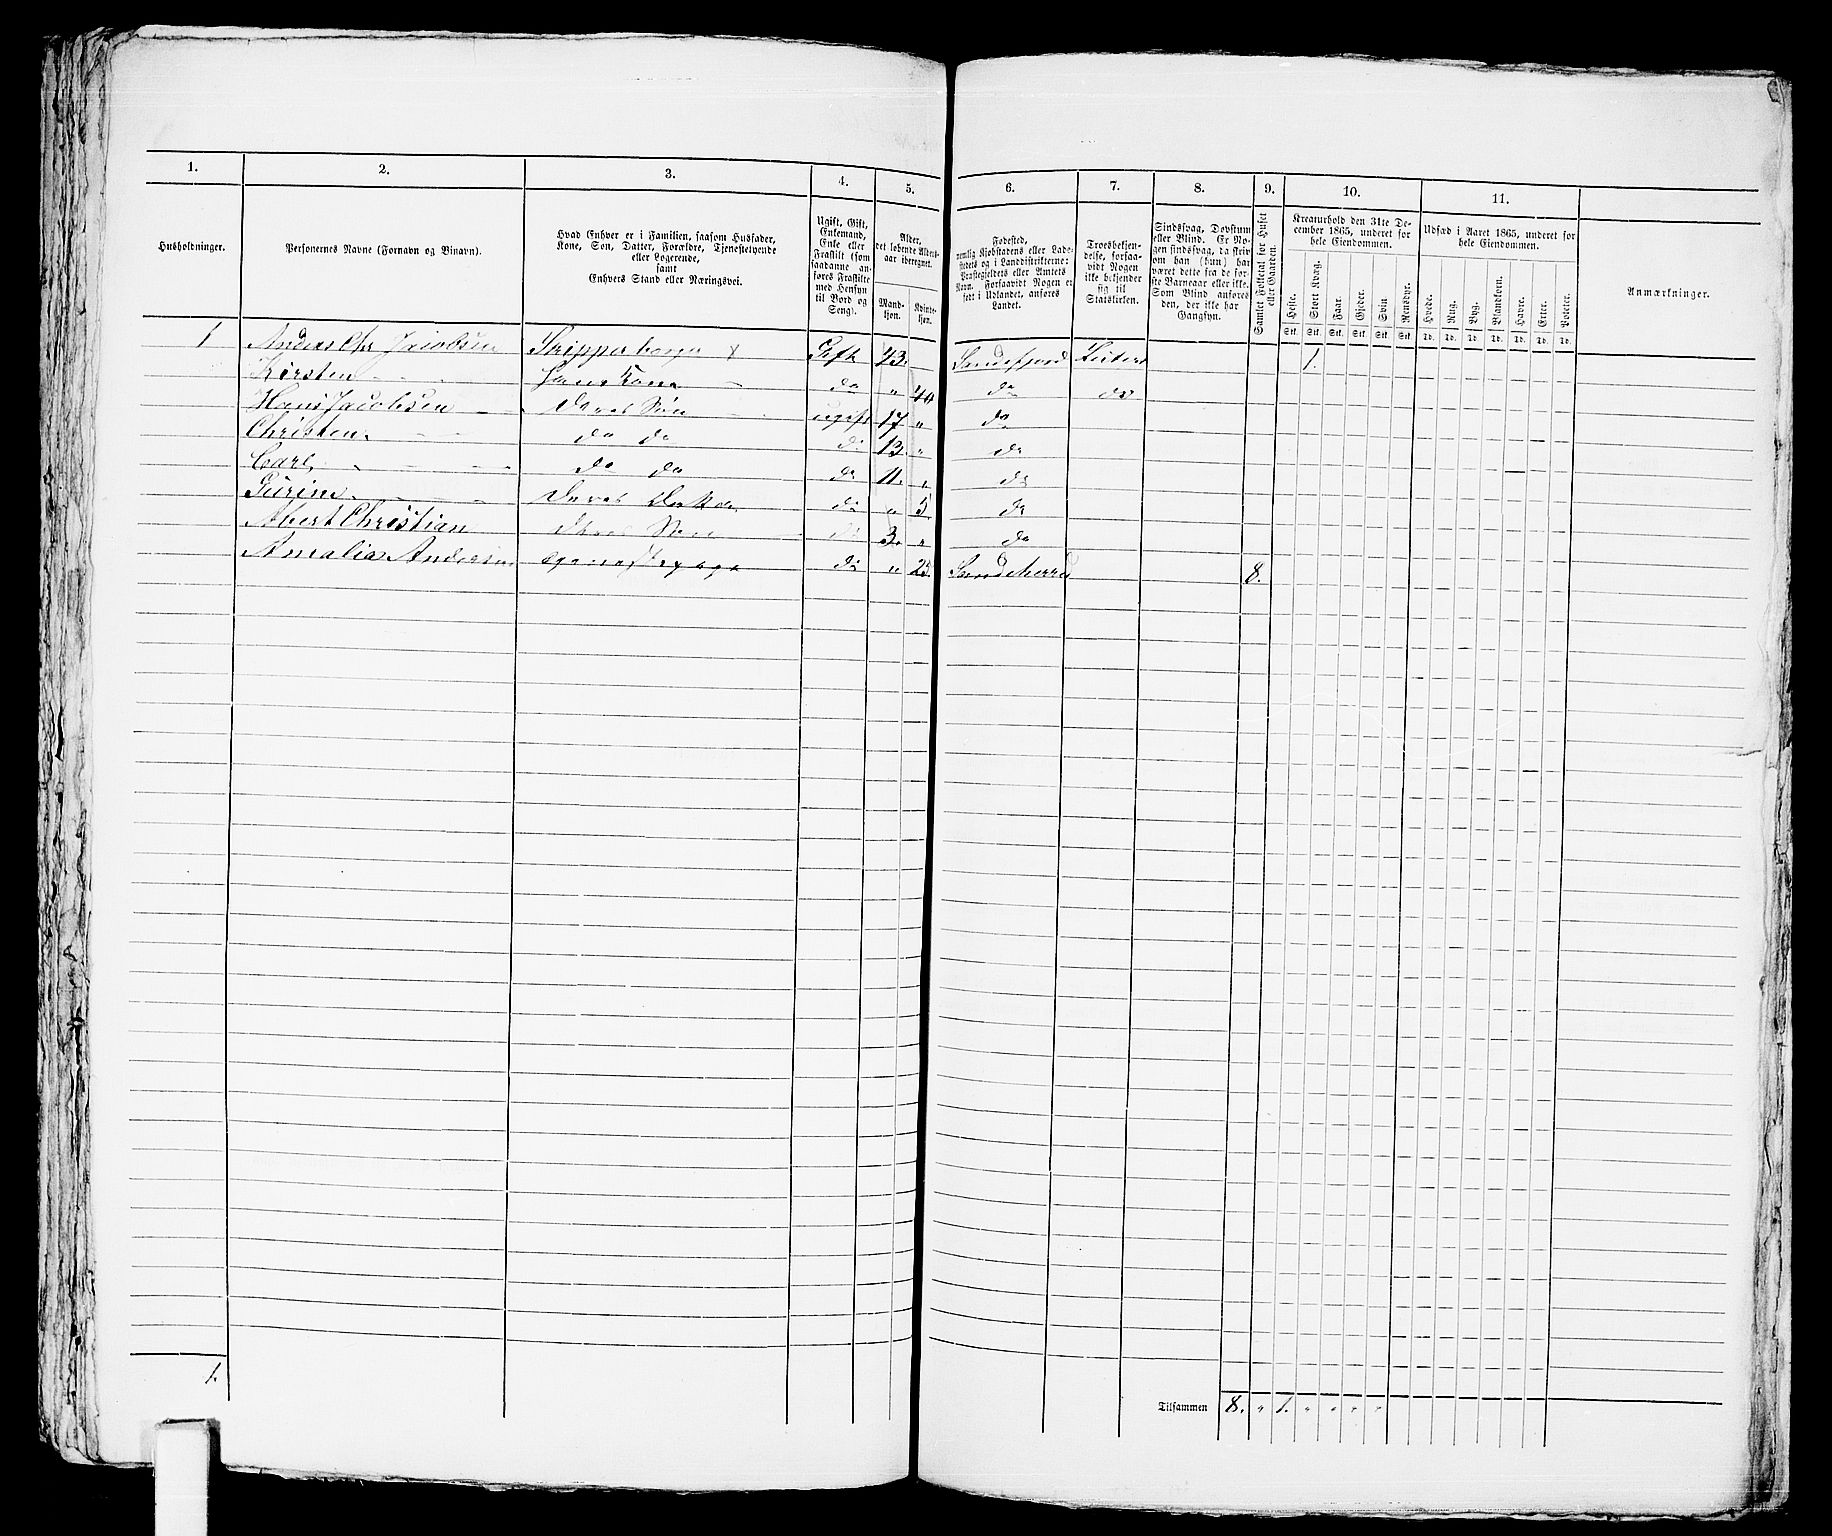 1. 2. 3. 4. 5. 6. 7. 8. 9. 10. 11.
Husholdninger.
Personernes Navne (Fornavn og Binavn).
Hvad Enhver er i Familien, saasom Husfader,
Kone, Søn, Datter, Forældre, Tjenestetyende
eller Logerende,
samt
Enhvers Stand eller Næringsvei.
Ugift, Gift,
Enkemand,
Enke eller
Fraskilt (som
saadanne an-
føres Fraskilte
med Hensyn
til Bord og
Seng).
Alder,
det løbende Alders-
aar iberegnet.
Mand-
kjøn.
Kvinde-
kjøn.
Fødested,
nemlig Kjøbstadens eller Lade-
stedets og i Landdistrikterne:
Præstegjeldets eller Amtets
Navn. Forsaavidt Nogen er
født i Udlandet, anføres
Landet.
Troesbekjen-
delse, forsaa-
vidt Nogen
ikke bekjender
sig til
Statskirken.
Sindssvag, Døvstum
eller Blind. Er No-
gen sindssvag, da skriv
om han (hun) har
været dette fra de før-
ste Barneaar eller ikke.
Som Blind anføres
den, der ikke har
Gangsyn.
Samlet Folketal for Huset
eller Gaarden.
Kreaturhold den 31te De-
cember 1865, underet for
hele Eiendommen.
Heste. Stort Kvæg. Faar. Gjeder. Svin Rensdyr.
Stk. Stk. Stk. Stk. Stk. Stk.
Udsæd i Aaret 1865, underet for
hele Eiendommen.
Hvede. Rug. Byg. Blandkorn. Havre. Erter. Poteter.
Td. Td. Td. Td. Td. Td. Td.
Anmærkninger.
1 Anders Chr Jacobsen Gift 43. Sandefjord 1.
Kirsten Hans Kone do " 40 do do
Hans Jacobsen Deres Søn ugift 17 " do
Christen do do do 13. " do
Carl do do do 11. " do
Deres do " 5 do
Albert Christian Deres Søn do 3. " do
Amalia Andersen do " 25. Sandeherred 8.
1.
Tilsammen 8. " 1. " " " "